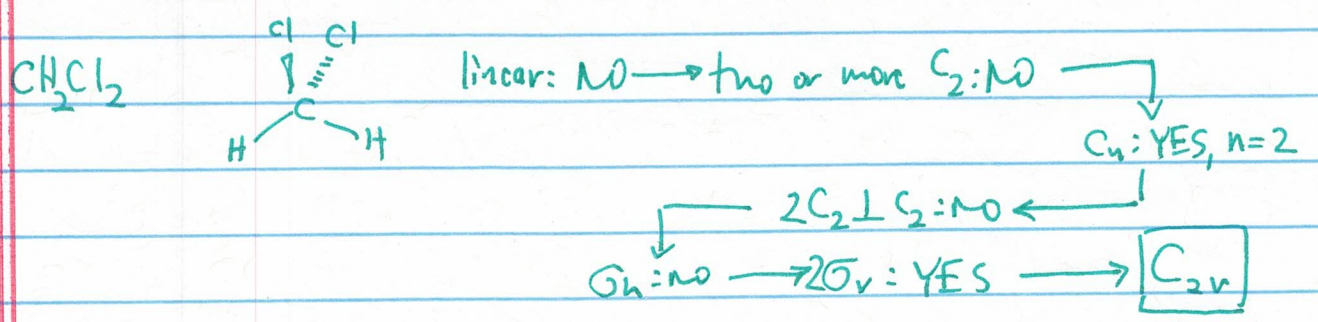 Cl Cl
CH₂Cl₂ C linear: NO → two or more C₂: NO
H H
Cₙ: YES, n=2
2C₂ ⊥ C₂: NO
σh: NO → 2σv: YES → C₂v